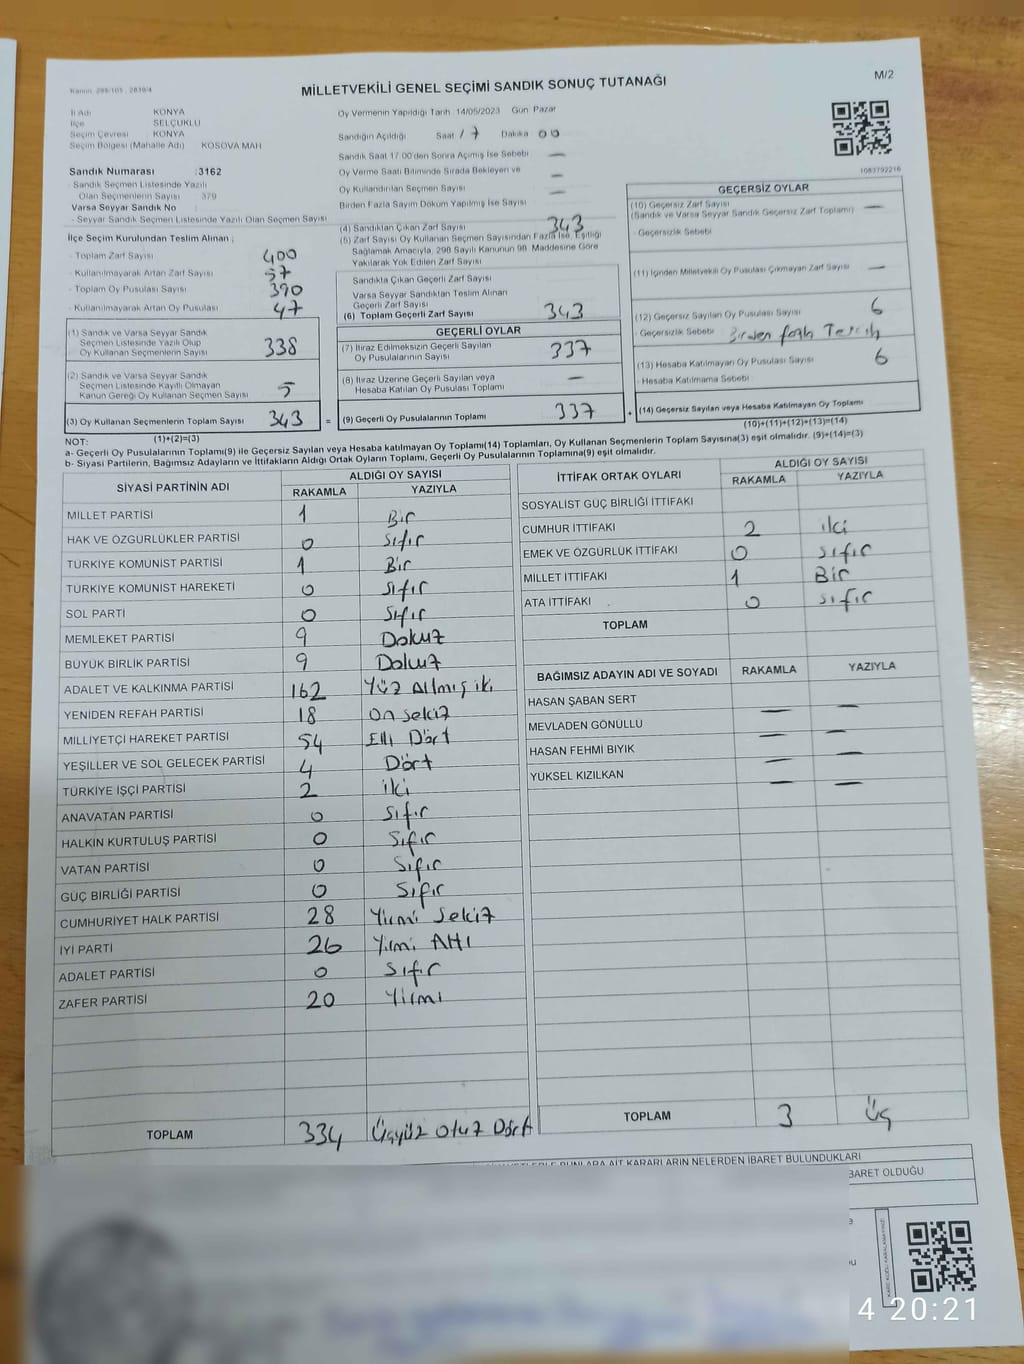 Kanun: 298/105 , 2839/4
MİLLETVEKİLİ GENEL SEÇİMİ SANDIK SONUÇ TUTANAĞI
M/2
İl Adı KONYA
İlçe SELÇUKLU
Seçim Çevresi : KONYA
Seçim Bölgesi (Mahalle Adı) KOSOVA MAH
Sandık Numarası :3162
- Sandık Seçmen Listesinde Yazılı
Olan Seçmenlerin Sayısı 379
Varsa Seyyar Sandık No
- Seyyar Sandık Seçmen Listesinde Yazılı Olan Seçmen Sayısı
İlçe Seçim Kurulundan Teslim Alınan ;
- Toplam Zarf Sayısı 400
- Kullanılmayarak Artan Zarf Sayısı 57
- Toplam Oy Pusulası 390
- Kullanılmayarak Artan Oy Pusulası 47
(1) Sandık ve Varsa Seyyar Sandık
Seçmen Listesinde Yazılı Olup
Oy Kullanan Seçmenlerin Sayısı 338
(2) Sandık ve Varsa Seyyar Sandık
Seçmen Listesinde Kayıtlı Olmayan
Kanun Gereği Oy Kullanan Seçmen Sayısı 5
(3) Oy Kullanan Seçmenlerin Toplam Sayısı 343
(1)+(2)=(3)
Oy Vermenin Yapıldığı Tarih 14/05/2023 Gün Pazar
Sandığın Açıldığı Saat 17 Dakika 00
Sandık Saat 17:00'den Sonra Açılmış İse Sebebi —
Oy Verme Saati Bitiminde Sırada Bekleyen ve —
Oy Kullandırılan Seçmen Sayısı —
Birden Fazla Sayım Döküm Yapılmış İse Sayısı
(4) Sandıktan Çıkan Zarf Sayısı 343
(5) Zarf Sayısı Oy Kullanan Seçmen Sayısından Fazla İse, Eşitliği
Sağlamak Amacıyla, 298 Sayılı Kanunun 98. Maddesine Göre
Yakılarak Yok Edilen Zarf Sayısı
Sandıkta Çıkan Geçerli Zarf Sayısı
Varsa Seyyar Sandıktan Teslim Alınan
Geçerli Zarf Sayısı
(6) Toplam Geçerli Zarf Sayısı 343
GEÇERLİ OYLAR
(7) İtiraz Edilmeksizin Geçerli Sayılan
Oy Pusulalarının Sayısı 337
(8) İtiraz Üzerine Geçerli Sayılan veya
Hesaba Katılan Oy Pusulası Toplamı —
= (9) Geçerli Oy Pusulalarının Toplamı 337 +
1083792216
GEÇERSİZ OYLAR
(10) Geçersiz Zarf Sayısı
(Sandık ve Varsa Seyyar Sandık Geçersiz Zarf Toplamı) —
- Geçersizlik Sebebi
(11) İçinden Milletvekili Oy Pusulası Çıkmayan Zarf Sayısı —
(12) Geçersiz Sayılan Oy Pusulası Sayısı 6
- Geçersizlik Sebebi Birden fazla Tercih
(13) Hesaba Katılmayan Oy Pusulası Sayısı 6
- Hesaba Katılmama Sebebi
(14) Geçersiz Sayılan veya Hesaba Katılmayan Oy Toplamı
(10)+(11)+(12)+(13)=(14)
NOT:
a- Geçerli Oy Pusulalarının Toplamı(9) ile Geçersiz Sayılan veya Hesaba katılmayan Oy Toplamı(14) Toplamları, Oy Kullanan Seçmenlerin Toplam Sayısına(3) eşit olmalıdır. (9)+(14)=(3)
b- Siyasi Partilerin, Bağımsız Adayların ve İttifakların Aldığı Ortak Oyların Toplamı, Geçerli Oy Pusulalarının Toplamına(9) eşit olmalıdır.
SİYASİ PARTİNİN ADI ALDIĞI OY SAYISI
RAKAMLA YAZIYLA
MİLLET PARTİSİ 1 Bir
HAK VE ÖZGÜRLÜKLER PARTİSİ 0 Sıfır
TÜRKİYE KOMÜNİST PARTİSİ 1 Bir
TÜRKİYE KOMÜNİST HAREKETİ 0 Sıfır
SOL PARTİ 0 Sıfır
MEMLEKET PARTİSİ 9 Dokuz
BÜYÜK BİRLİK PARTİSİ 9 Dokuz
ADALET VE KALKINMA PARTİSİ 162 Yüz Altmış iki
YENİDEN REFAH PARTİSİ 18 On sekiz
MİLLİYETÇİ HAREKET PARTİSİ 54 Elli Dört
YEŞİLLER VE SOL GELECEK PARTİSİ 4 Dört
TÜRKİYE İŞÇİ PARTİSİ 2 iki
ANAVATAN PARTİSİ 0 Sıfır
HALKIN KURTULUŞ PARTİSİ 0 Sıfır
VATAN PARTİSİ 0 Sıfır
GÜÇ BİRLİĞİ PARTİSİ 0 Sıfır
CUMHURİYET HALK PARTİSİ 28 Yirmi Sekiz
İYİ PARTİ 26 Yirmi Altı
ADALET PARTİSİ 0 Sıfır
ZAFER PARTİSİ 20 Yirmi
TOPLAM 334 Üçyüz Otuz Dört
İTTİFAK ORTAK OYLARI ALDIĞI OY SAYISI
RAKAMLA YAZIYLA
SOSYALİST GÜÇ BİRLİĞİ İTTİFAKI
CUMHUR İTTİFAKI 2 iki
EMEK VE ÖZGÜRLÜK İTTİFAKI 0 sıfır
MİLLET İTTİFAKI 1 Bir
ATA İTTİFAKI 0 sıfır
TOPLAM
BAĞIMSIZ ADAYIN ADI VE SOYADI RAKAMLA YAZIYLA
HASAN ŞABAN SERT — —
MEVLADEN GÖNÜLLÜ — —
HASAN FEHMİ BIYIK — —
YÜKSEL KIZILKAN — —
TOPLAM 3 Üç
BUNLARA AİT KARARLARIN NELERDEN İBARET BULUNDUKLARI
BARET OLDUĞU
4 20:21